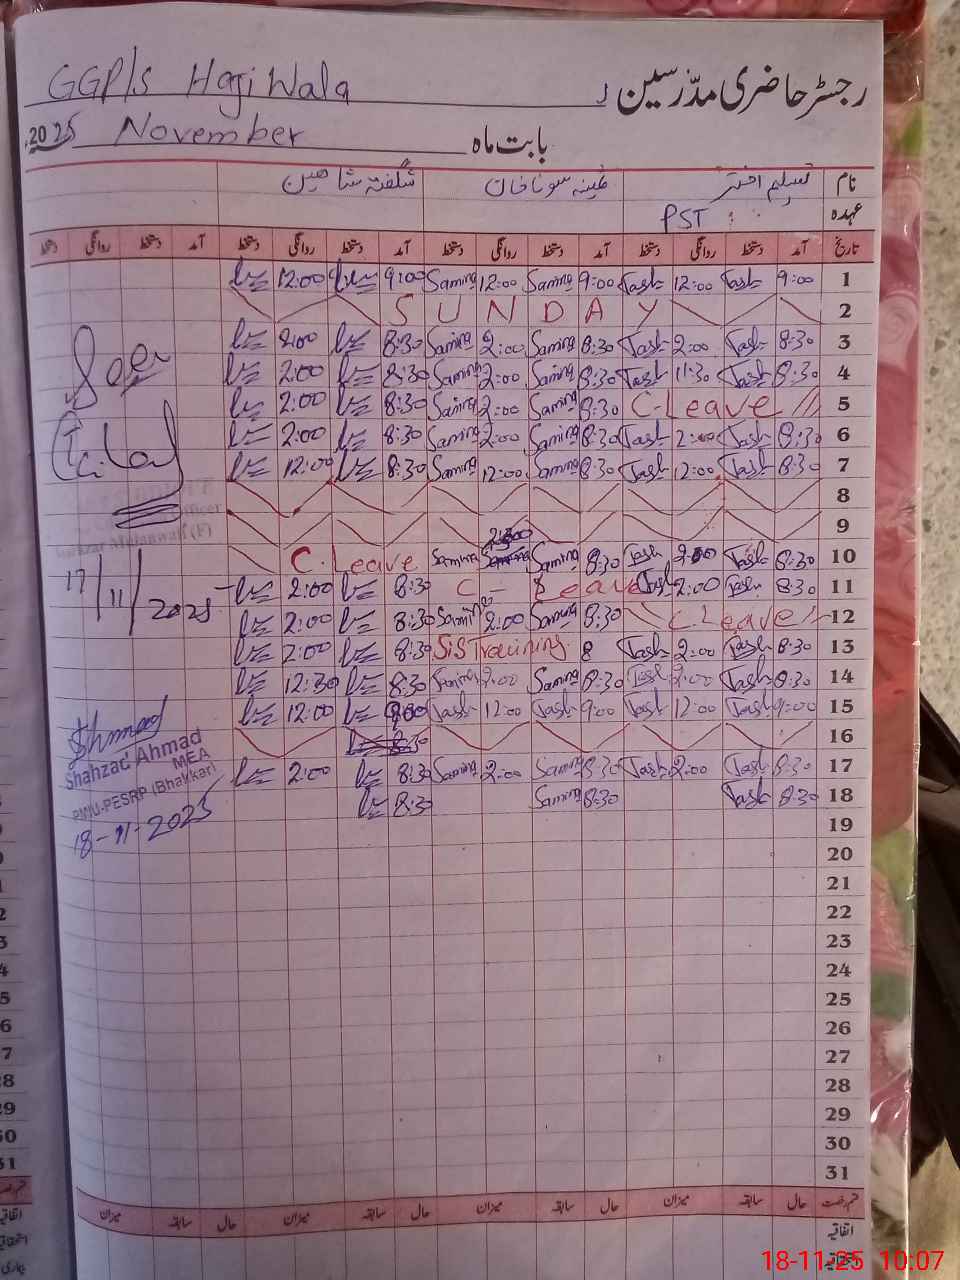 GGP/s Haji Wala رجسٹر حاضری مدرسین
2025 November بابت ماہ
نام تسلیم اختر شگفتہ شاھین
عہدہ PST
تاریخ آمد دستخط روانگی دستخط آمد دستخط روانگی دستخط آمد دستخط روانگی دستخط آمد دستخط روانگی دستخط
12:00 9:00 Samina 12:00 Samina 9:00 Tash 12:00 Tash 9:00 1
SUNDAY 2
2:00 8:30 Samina 2:00 Samina 8:30 Tash 2:00 Tash 8:30 3
2:00 8:30 Samina 2:00 Samina 8:30 Tash 11:30 Tash 8:30 4
2:00 8:30 Samina 2:00 Samina 8:30 C-Leave 5
2:00 8:30 Samina 2:00 Samina 8:30 Tash 2:00 Tash 8:30 6
12:00 8:30 Samina 12:00 Samina 8:30 Tash 12:00 Tash 8:30 7
8
9
C.Leave Samina 2:00 Samina 8:30 Tash 2:00 Tash 8:30 10
17/11/2025 2:00 8:30 C-Leave Tash 2:00 Tash 8:30 11
2:00 8:30 Samina 2:00 Samina 8:30 C.Leave 12
2:00 8:30 SIS Training 8 Tash 2:00 Tash 8:30 13
12:30 8:30 Samina 2:00 Samina 8:30 Tash 2:00 Tash 8:30 14
12:00 9:00 Tash 12:00 Tash 9:00 Tash 12:00 Tash 9:00 15
8:30 16
2:00 8:30 Samina 2:00 Samina 8:30 Tash 2:00 Tash 8:30 17
8:30 Samina 8:30 Tash 8:30 18
Shahzad Ahmad
MEA
PMIU-PESRP (Bhakkar)
18-11-2025
19
20
21
22
23
24
25
26
27
28
29
30
31
قسم رخصت حال سابقہ میزان حال سابقہ میزان حال سابقہ میزان حال سابقہ میزان
اتفاقیہ
استحقاقیہ
18-11-25 10:07